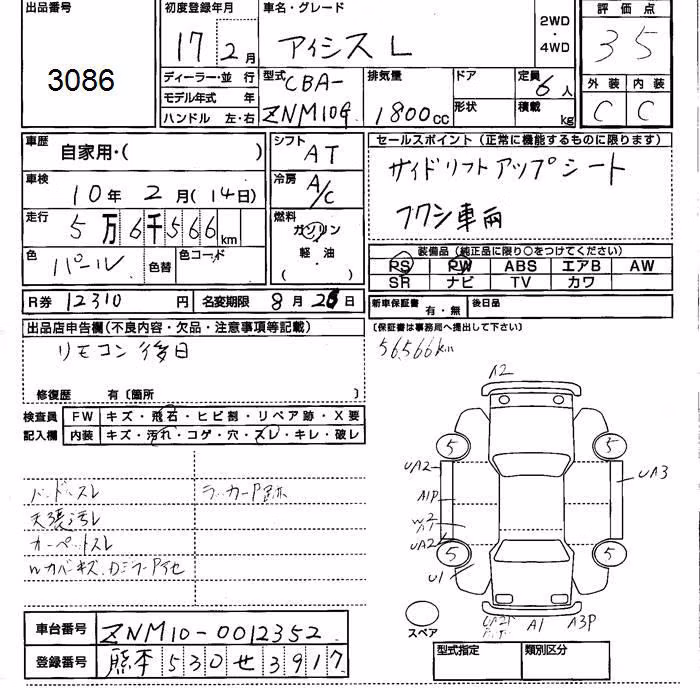 出品番号 初度登録年月 車名・グレード 評価点
3086 17年 2月 アイシス L 2WD・4WD 3 5
ディーラー・並行 型式 排気量 ドア 定員 外装 内装
モデル年式 年 CBA- 形状 6人 C C
ハンドル 左・右 ZNM10G 1800cc 積載 kg
車歴 自家用・( ) シフト AT セールスポイント (正常に機能するものに限ります)
車検 10年 2月 (14日) 冷房 A/C サイドリフトアップシート
走行 5万6千566km 燃料 ガソリン フクシ車両
軽油
( )
色 パール 色替 色コード 装備品 (純正品に限り○をつけてください)
PS PW ABS エアB AW
SR ナビ TV カワ
R券 12310円 名変期限 8月 日 新車保証書 有・無 後日品
出品店申告欄(不良内容・欠品・注意事項等記載) (保証書は事務局へ提出して下さい)
リモコン後日 56,566km
修復歴 有〔箇所 〕
検査員 FW キズ・飛石・ヒビ割・リペア跡・X要
記入欄 内装 キズ・汚れ・コゲ・穴・スレ・キレ・破レ
ハンドルスレ ラッカーP跡
天張汚レ
カーペットスレ
A2
5 5
UA2 UA3
A1P
W2
UA2
5 5
U1
A1 A3P
スペア
車台番号 ZNM10-0012352
登録番号 熊本 530 せ 3917
型式指定 類別区分